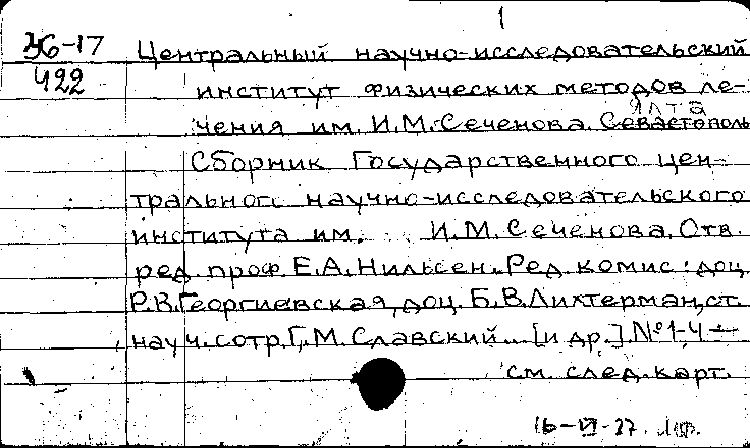 1
36-17
422
Центральный научно-исследовательский
институт физических методов ле-
Ялта
чения им. И.М.Сеченова. Севастополь
Сборник Государственного цен-
трального научно-исследовательского
института им. И.М. Сеченова. Отв.
ред. проф. Е.А. Нильсен. Ред. комис.: доц.
Р.В.Георгиевская, доц. Б.В.Лихтерман, ст.
науч. сотр. Г.М. Славский... [и др.]. №1-4 –
см. след. карт.
16-VI-77.